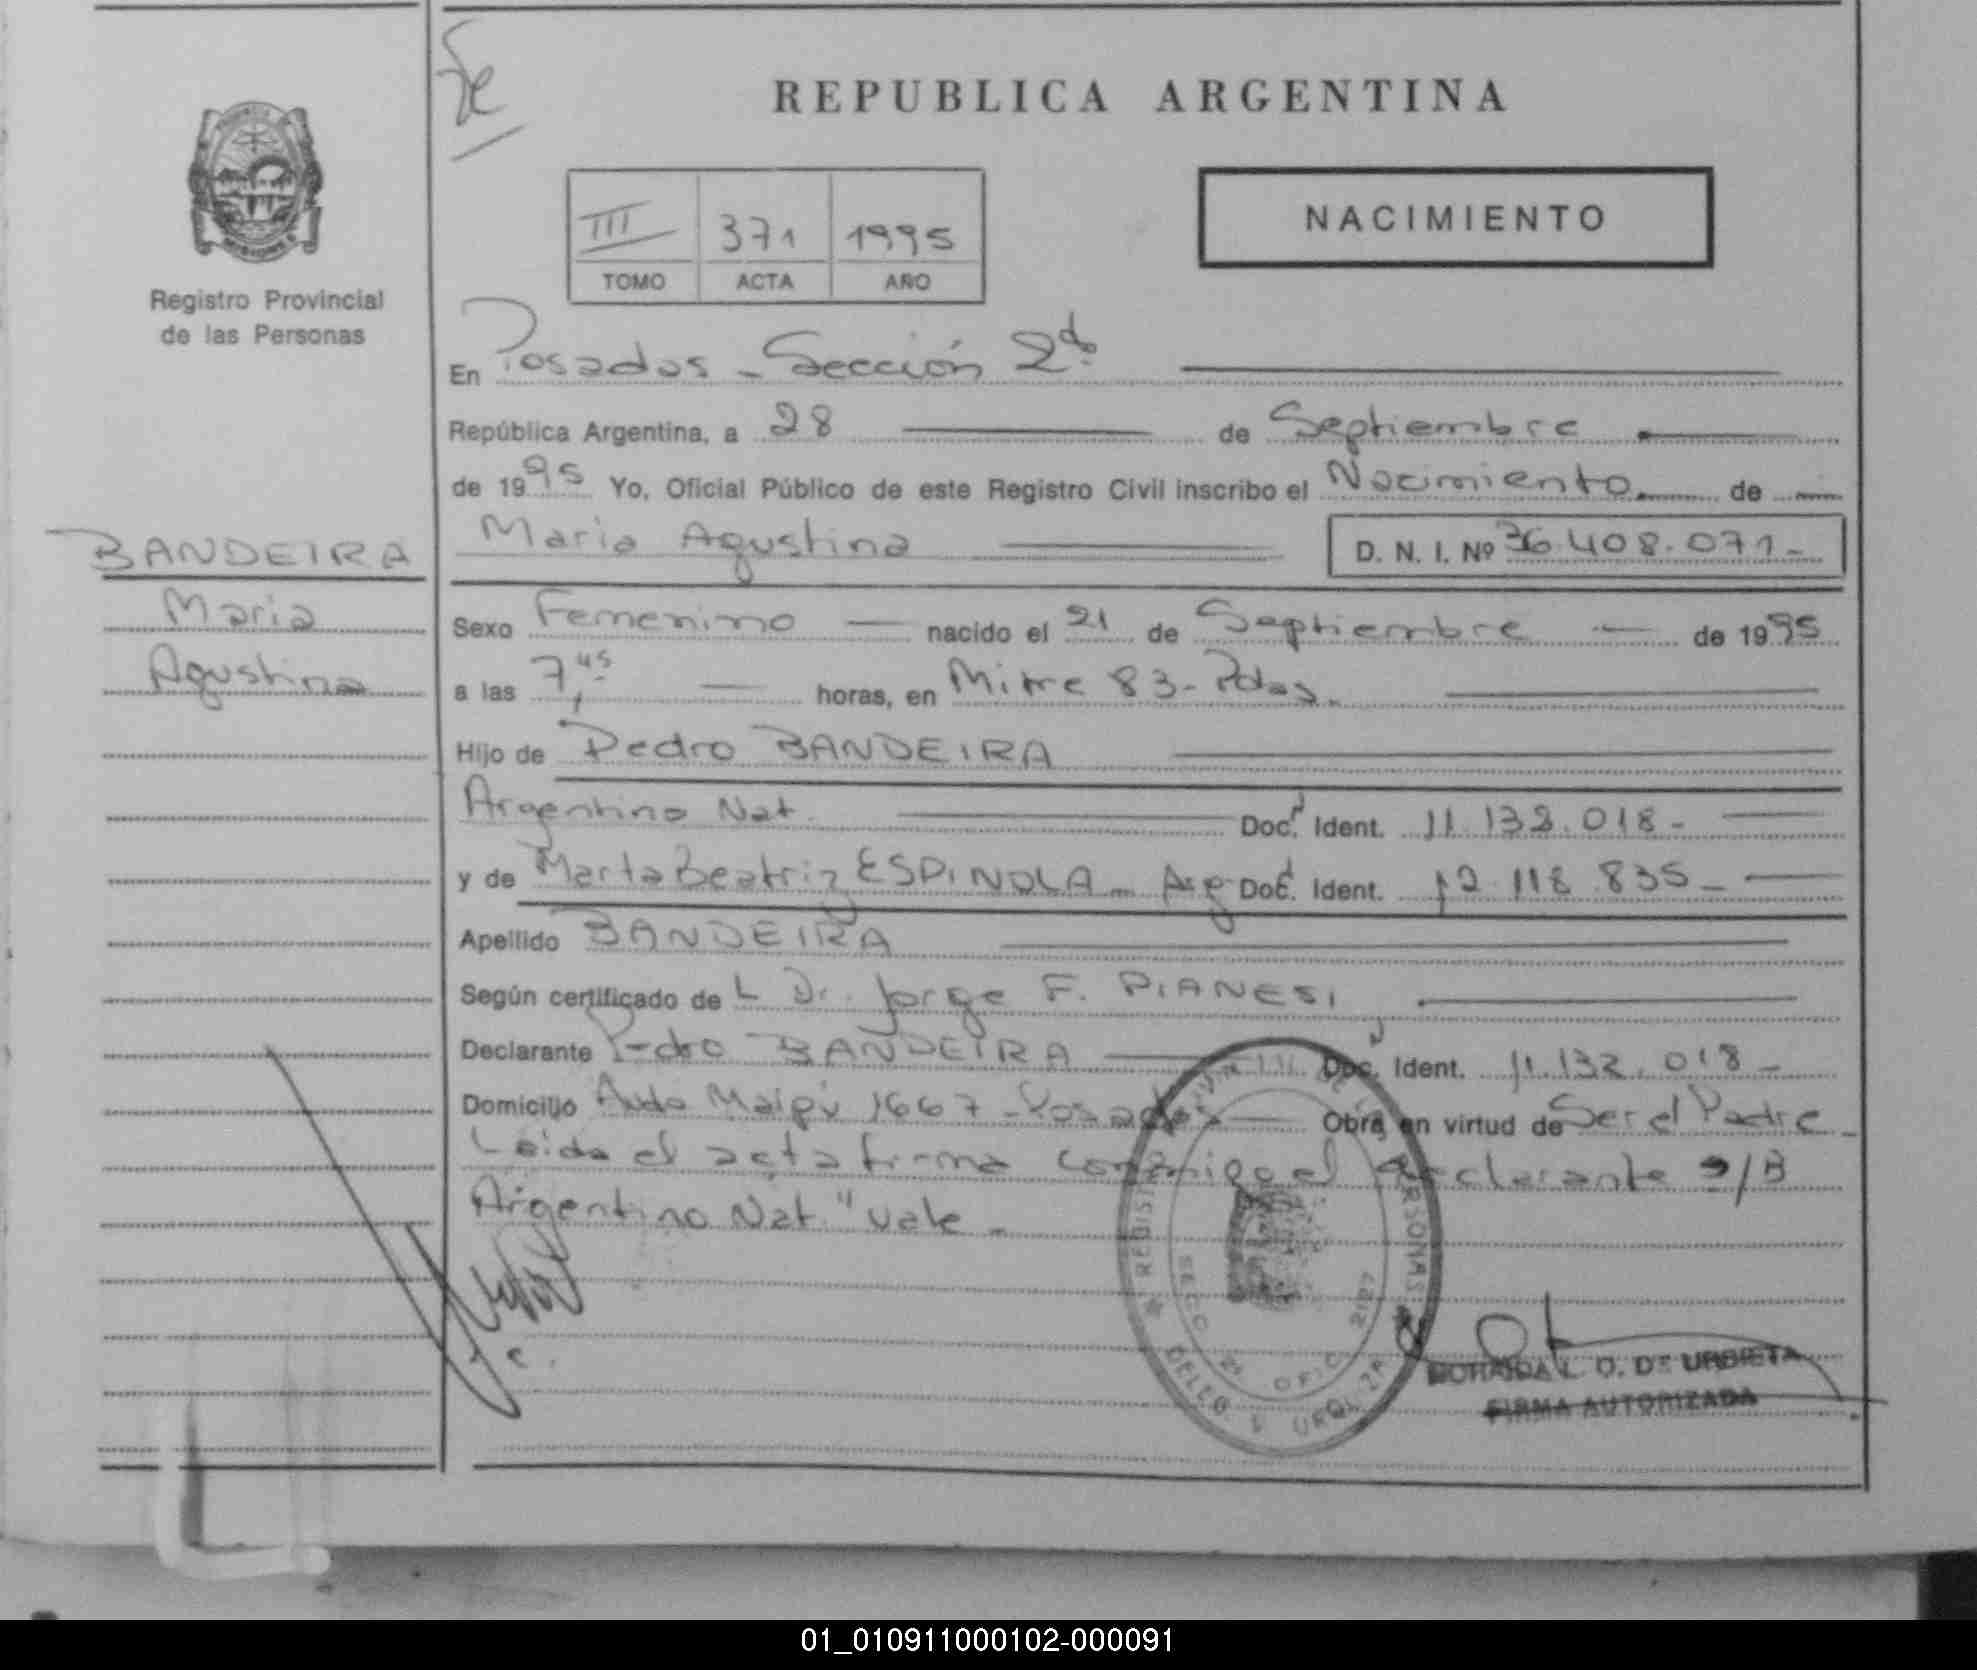 REPUBLICA ARGENTINA
NACIMIENTO
III 371 1995
TOMO ACTA AÑO
Registro Provincial
de las Personas
En Posadas - Sección 2da
República Argentina, a 28 de Septiembre
de 1995 Yo, Oficial Público de este Registro Civil inscribo el Nacimiento de
Maria Agustina D. N. I. Nº 36.408.071-
BANDEIRA
Maria
Agustina
Sexo Femenino nacido el 21 de Septiembre de 1995
a las 7,45 horas, en Mitre 83 - Pdas.
Hijo de Pedro BANDEIRA
Argentino Nat. Doc. Ident. 11.132.018-
y de Marta Beatriz ESPINOLA - Arg Doc. Ident. 12.118.835-
Apellido BANDEIRA
Según certificado de L Dr. Jorge F. PIANESI
Declarante Pedro BANDEIRA Doc. Ident. 11.132.018-
Domicilio Avda Maipú 1667 - Posadas Obra en virtud de Ser el Padre -
Leida el acta firma conmigo el declarante s/B
Argentino Nat." vale -
REGISTRO DE LAS PERSONAS
SECC 2ª OFIC 2127
DELLO Y URQUIZA
L. O. DE URBIETA
FIRMA AUTORIZADA
01_010911000102-000091